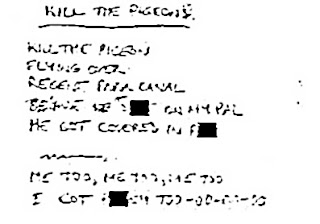 KILL THE PIGEONS.
KILL THE PIGEON
FLYING OVER
REGENT PARK CANAL
ON MY PAL
HE GOT COVERED IN
ME TOO, ME TOO, ME TOO
I GOT TOO-OO-OO-OO